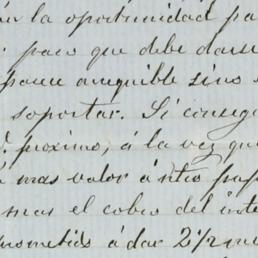 la oportunidad pa
paso que debe darse
parece asequible sino
soportar. Si conseg
proximo, á la vez que
mas valor á ntro pap
mas el cobro del inte
prometido á dar 2½